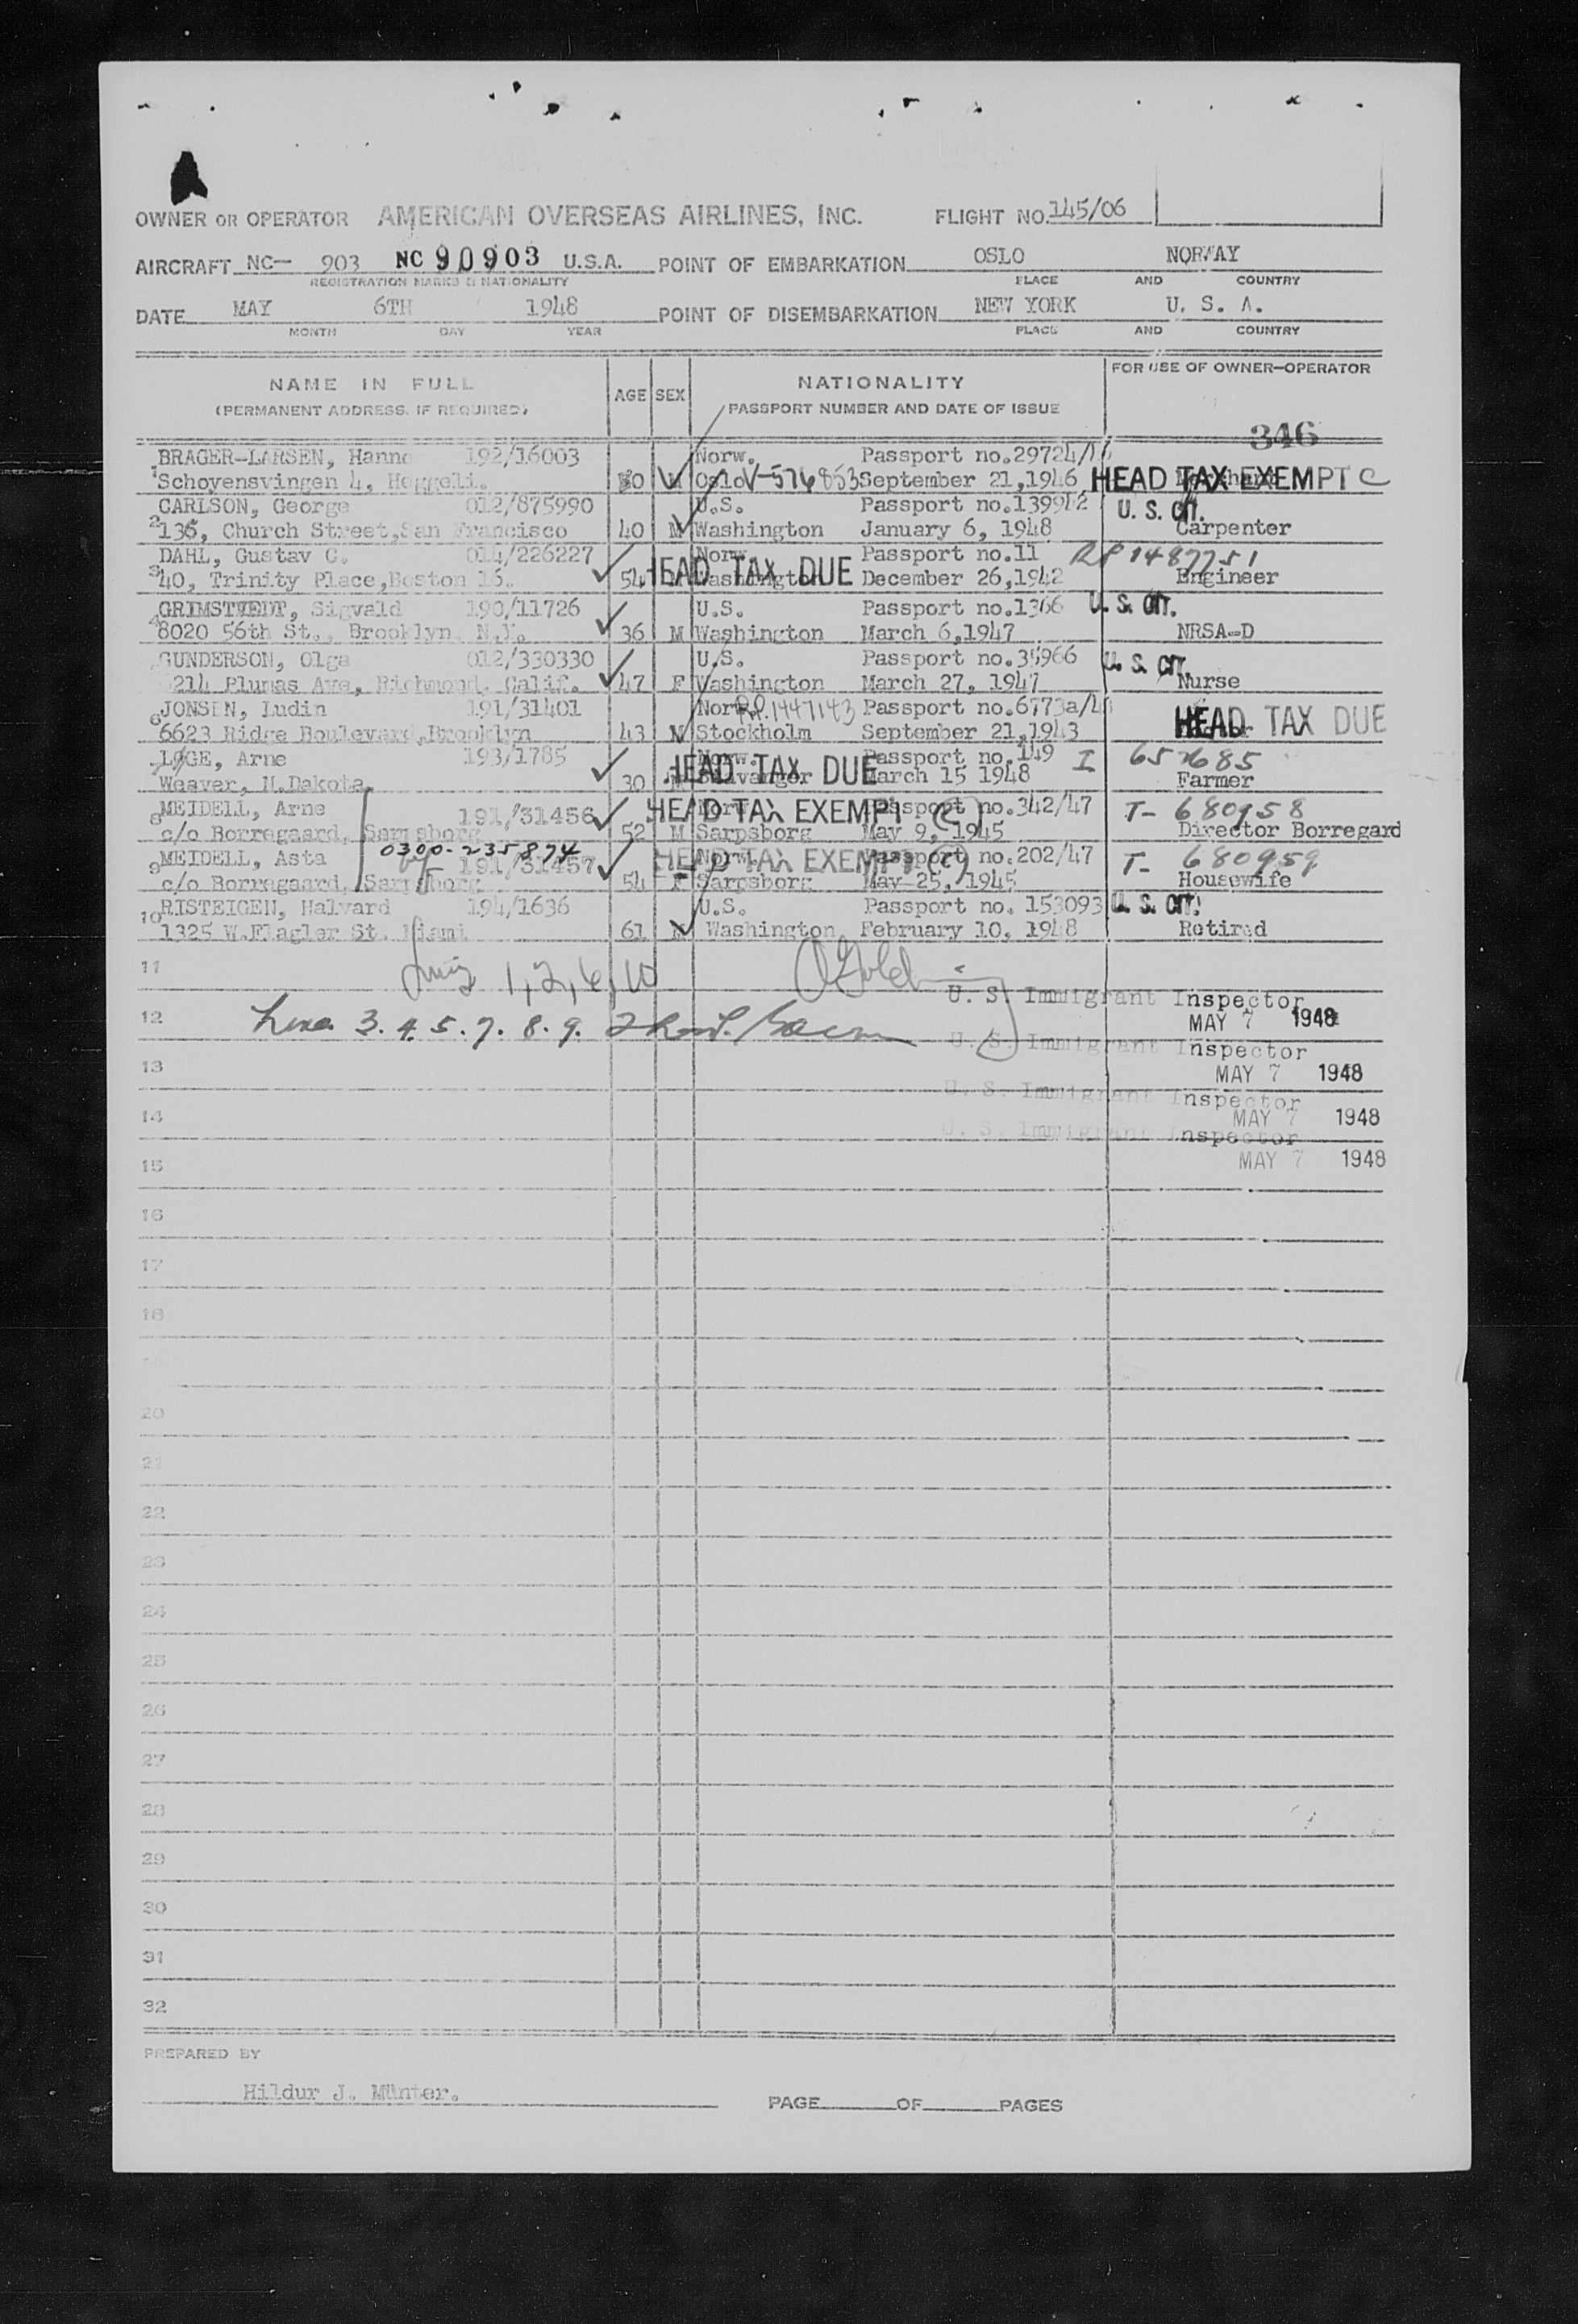 OWNER OR OPERATOR AMERICAN OVERSEAS AIRLINES, INC. FLIGHT NO. 145/06
AIRCRAFT NC— 903 NC 90903 U.S.A. POINT OF EMBARKATION OSLO NORWAY
REGISTRATION MARKS & NATIONALITY PLACE AND COUNTRY
DATE MAY 6TH 1948 POINT OF DISEMBARKATION NEW YORK U. S. A.
MONTH DAY YEAR PLACE AND COUNTRY
NAME IN FULL AGE SEX NATIONALITY FOR USE OF OWNER—OPERATOR
(PERMANENT ADDRESS, IF REQUIRED) PASSPORT NUMBER AND DATE OF ISSUE
346
BRAGER-LARSEN, Hanne 192/16003 Norw. Passport no.29724/
1 Schoyensvingen 4, Heggeli. Oslo V-576853 September 21,1946 HEAD TAX EXEMPT C
CARLSON, George 012/875990 U.S. Passport no.139942 U. S. CIT.
2 136, Church Street,San Francisco 40 M Washington January 6, 1948 Carpenter
DAHL, Gustav C. 014/226227 Norw. Passport no.11 RP 1487751
3 40, Trinity Place,Boston 16. 54 HEAD TAX DUE Washington December 26,1942 Engineer
GRIMSTVEDT, Sigvald 190/11726 U.S. Passport no.1366 U. S. CIT.
4 8020 56th St., Brooklyn N.Y. 36 M Washington March 6,1947 NRSA-D
GUNDERSON, Olga 012/330330 U.S. Passport no.35966 U. S. CIT.
5214 Plumas Ave, Richmond, Calif. 47 F Washington March 27, 1947 Nurse
JONSEN, Ludin 191/31401 Norw. R.P. 1447143 Passport no.6773a/4
6 6623 Ridge Boulevard,Brooklyn 43 M Stockholm September 21,1943 HEAD TAX DUE
LØGE, Arne 193/1785 Norw. Passport no.149 I
Weaver, N.Dakota. 30 M HEAD TAX DUE Stavanger March 15 1948 Farmer
MEIDELL, Arne 191/31456 HEAD TAX EXEMPT (C) Norw. Passport no.342/47 T- 680958
8 c/o Borregaard, Sarpsborg 52 M Sarpsborg May 9, 1945 Director Borregard
0300-235874
MEIDELL, Asta 191/31457 HEAD TAX EXEMPT (C) Norw. Passport no.202/47 T- 680959
9 c/o Borregaard, Sarpsborg 54 F Sarpsborg May 25, 1945 Housewife
RISTEIGEN, Halvard 194/1636 U.S. Passport no. 153093 U. S. CIT.
10 1325 W.Flagler St. Miami 61 M Washington February 10, 1948 Retired
11 1,2,6,10
U. S. Immigrant Inspector
12 Lines 3. 4. 5. 7. 8. 9. MAY 7 1948
U. S. Immigrant Inspector
13 MAY 7 1948
U. S. Immigrant Inspector
14 MAY 7 1948
U. S. Immigrant Inspector
15 MAY 7 1948
16
17
18
20
21
22
23
24
25
26
27
28
29
30
31
32
PREPARED BY
Hildur J. Münter.
PAGE OF PAGES